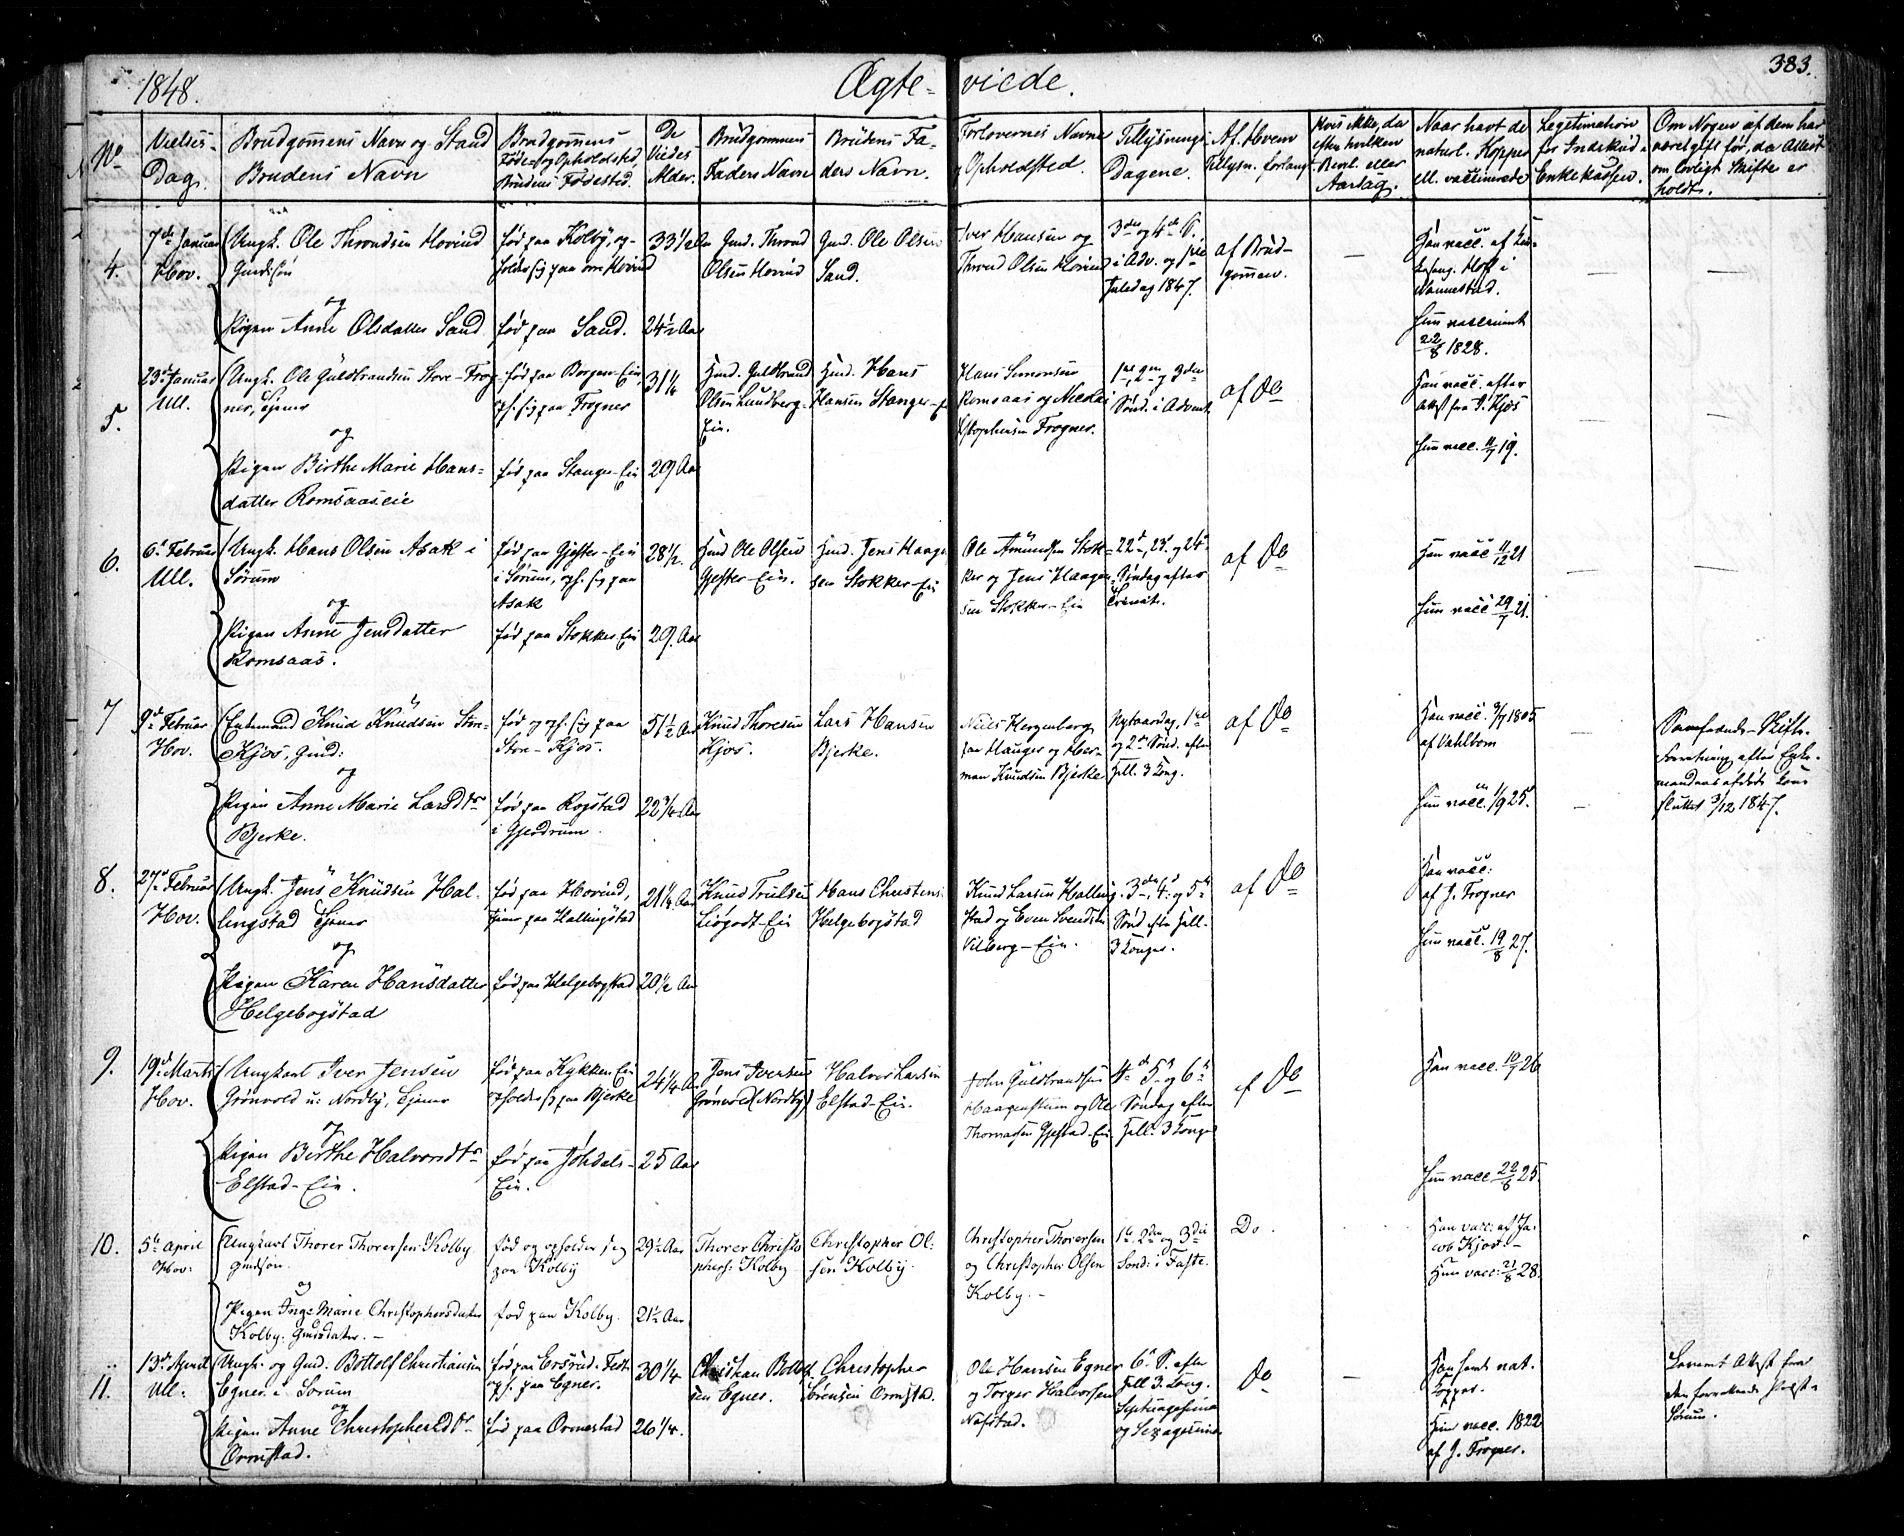 1848.
Ægte-viede.
383.
No
Vielses-Dag.
Brudgommens Navn og Stand
Brudens Navn
Brudgommens Føde- og Opholdsted, Brudens Fødested.
De Viedes Alder.
Brudgommens Faders Navn
Brudens Faders Navn.
Forlovernes Navne og Opholdsted.
Tillysnings-Dagene.
Af Hvem Tillysn. forlangt
Hvis ikke, da efter hvilken Bevil. eller Aarsag.
Naar havt de naturl. Kopper ell. vaccinerede
Legitimation for Indskud i Enkekassen.
Om Nogen af dem har været gift før, da Attest om lovligt Skifte er holdt.
4.
7de Januar
Hov.
Ungk. Ole Throndsen Hovind
Gmdssøn
og
Pigen Anne Olsdatter Sand
født paa Kolby, op-
holder sig paa Hovind
født paa Sand.
33 1/2
24 1/2 Aar
Gmd. Thrond
Olsen Hovind
Gmd. Ole Olsen
Sand.
Iver Hansen og
Thrond Olsen Hovind
3die og 4de S.
i Adv. og 1ste
Juledag 1847.
af Brud-
gommen.
Han vacc. af
Hoff i
Nannestad.
Hun vaccineret
22/8 1828.
5.
23de Januar
Ull.
Ungk. Ole Guldbrandsen Store-Frog-
ner, Tjener
og
Pigen Birthe Marie Hans-
datter Romsaaseie
født paa Borgen-Eie,
oph. sig paa Frogner
født paa Stanger-Eie
31 1/4
29 Aar
Husm. Guldbrand
Olsen Lundberg-
Eie.
Husm. Hans
Hansen Stanger-Eie
Hans Simensen
Romsaas og Nicolai
Christophersen Frogner.
1ste, 2den og 3die
Sønd. i Advent
af Do
Han vacc. efter
Attest fra J. Kjos
Hun vacc. 11/7 19.
6.
6te Februar
Ull.
Ungk. Hans Olsen Asak i
Sørum
og
Pigen Anne Jensdatter
Romsaas.
født paa Gjester-Eie
i Sørum, oph. sig paa
Asak
født paa Stokker-Eie
28 1/2.
29. Aar
Husm. Ole Olsen
Gjester-Eie.
Husm. Jens Haagen-
sen Stokker-Eie
Ole Amundsen Stok-
ker og Jens Haagen-
sen Stokker-Eie
22de, 23de og 24de
Søndag efter
Trinit.
af Do
Han vacc 11/12 21
Hun vacc 29/7 21.
7
9de Februar
Hov.
Enkemand Knud Knudsen Store-
Kjos, Gmd:
og
Pigen Anne Marie Larsdtr
Bjerke.
født og oph. sig paa
Store-Kjos.
født paa Rogstad
i Gjerdrum.
51 1/2 Aar
22 3/4 Aar
Knud Thoresen
Kjos.
Lars Hansen
Bjerke.
Niels Herzenberg
paa Hauger og Her-
man Knudsen Bjerke
Nytaarsdag, 1ste
og 2den Sønd. efter
Hell. 3 Kong.
af Do
Han vacc. 9/7 1805
af Vahlbom
Hun vacc. 1/9 25.
Samfrænde-Skifte-
forretning efter Enke-
mandens afdøde Kone
sluttet 3/12 1847.
8.
27de Februar
Hov.
Ungk. Jens Knudsen Hal-
lingstad Tjener
og
Pigen Karen Hansdatter
Helgebogstad
født paa Hovind,
tjener paa Hallingstad
født paa Helgebogstad
21 1/4 Aar
20 1/2 Aar
Knud Trulsen
Liogodt-Eie
Hans Christens:
Helgebogstad
Knud Larsen Halling-
stad og Even Svendsen
Vilberg-Eie.
3die, 4de og 5te
Sønd. efter Hell.
3 Konger.
af Do
Han vacc:
af J. Frogner
Hun vacc. 19/8 27.
9.
19de Marts
Hov.
Ungkarl Iver Jensen
Grønvold u: Nordby, Tjener
og
Pigen Birthe Halvorsdtr
Elstad-Eie.
født paa Kykken Eie
opholder sig paa Bjerke
født paa Johdals-
Eie.
24 1/4 Aar
25 Aar
Jens Iversen
Grønvold (Nordby)
Halvor Larsen
Elstad-Eie.
John Guldbrandsen
Haagenstuen og Ole
Thomassen Gjestad-Eie
4de 5te og 6te
Søndag efter
Hell. 3 Konger
af Do
Han vacc. 10/7 26
Hun vacc 22/8 25.
10.
5te April
Hov:
Ungkarl Thorer Thorersen Kolby
Gmdsøn.
og
Pigen Inge Marie Christophersdatter
Kolby. Gmdsdatter. -
født og opholder sig
paa Kolby
født paa Kolby.
29 1/2 Aar
21 1/2 Aar
Thorer Christo
phers: Kolby
Christopher Ol:
sen Kolby.
Christopher Thorersen
og Christopher Olsen
Kolby. -
1ste 2den og 3die
Sønd: i Faste.
Do.
Han vacc: af Ja-
cob Kjos. -
Hun vacc: 21/8 28.
11.
13de April
Ull:
Ungk. og Gmd. Bottolf Christiansen
Egner i Sørum
og
Pigen Anne Christophersdtr
Ormstad.
født paa
oph. paa Egner.
født paa Ormestad
30 1/4
26 1/4.
Christian Bottolf-
sen Egner.
Christopher
Sørensen Ormstad.
Ole Hansen Egner
og Torger Halvorsen
Nafstad.
6te S. efter
Hell 3. Kong.
Septuagesima
og Sexagesima
Do
Han havt nat.
Kopper.
Hun vacc. 1822
af J. Frogner.
Attest fra
Sørum.